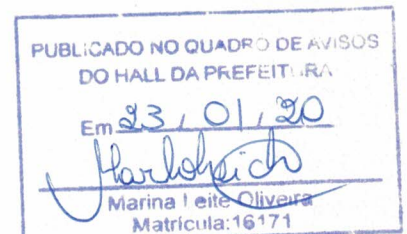 PUBLICADO NO QUADRO DE AVISOS
DO HALL DA PREFEITURA
Em 23 / 01 / 20
Marina Leite Oliveira
Matrícula:16171